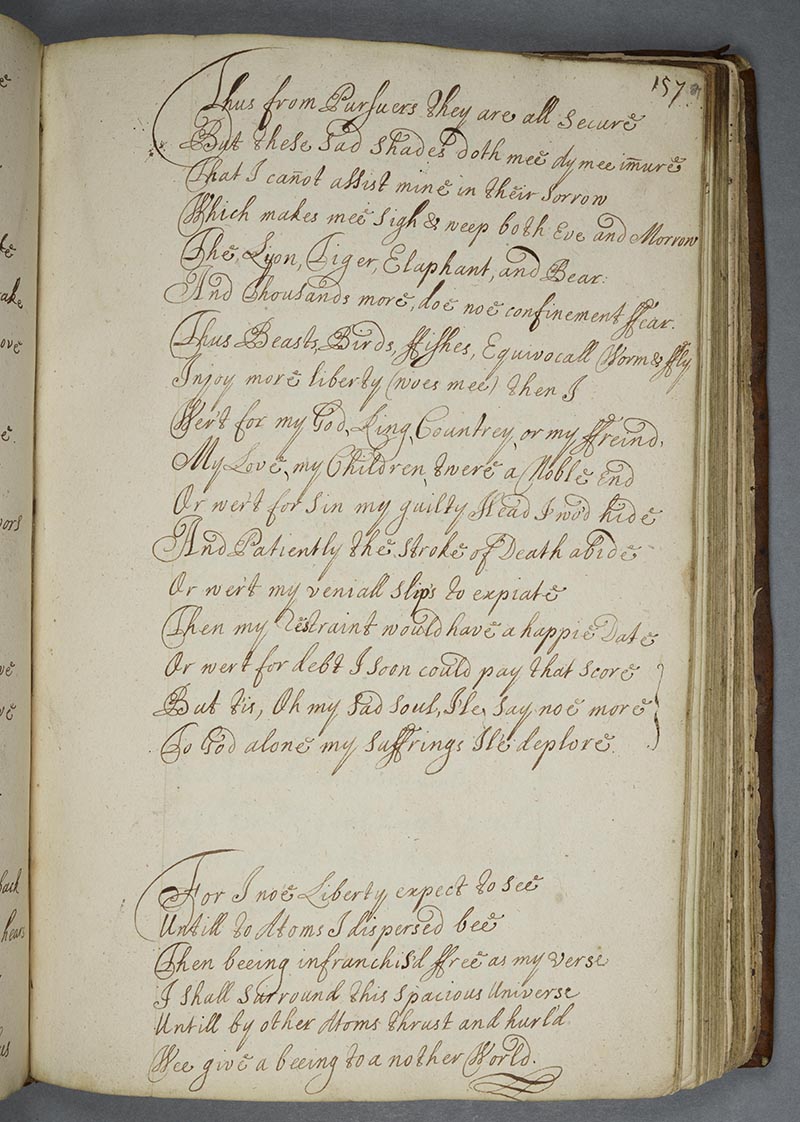 157
Thus from Pursuers they are all Secure
But these Sad Shades doth mee dy mee im̄ure
That I can̄ot assist mine in their Sorrow
Which makes mee Sigh & weep both Eve and Morrow
The, Lyon, Tiger, Elaphant, and Bear:
And Thousands more, doe noe confinement ffear.
Thus Beasts, Birds, ffishes, Equivocall Worm & ffly
Injoy more liberty (woes mee) then I
Wer't for my God, King, Countrey, or my ffreind,
My Love, my Children, twere a Noble End
Or wer't for Sin my guilty Head I wo'd hide
And Patiently the Stroke of Death abide
Or wer't my veniall Slips to expiate
Then my Restraint would have a happie Date
Or wert for debt I Soon could pay that Score
But tis, Oh my Sad Soul, Ile Say noe more
To God alone my Suffrings Ile deplore
For I noe Liberty expect to See
Untill to Atoms I dispersed bee
Then beeing infranchis'd ffree as my verse
I Shall Surround this Spacious Universe
Untill by other Atoms thrust and hurl'd
Wee give a beeing to a nother World.
ke
ake
ove
e.
vors
ve
ve
back
hears
us